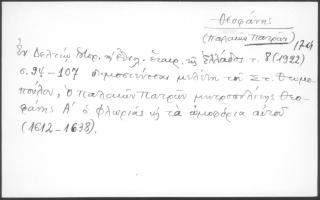 Θεοφάνης
(Παλαιῶν Πατρῶν)
Ἐν Δελτίῳ Ἱστορ. κ. Ἐθνολ. Ἑταιρ. τῆς Ἑλλάδος τ. 8 (1922)
σ. 94-107 δημοσιεύεται μελέτη τοῦ Στ. Θωμο-
πούλου, Ὁ Παλαιῶν Πατρῶν μητροπολίτης Θεο-
φάνης Α' ὁ Φλωρίας κ. τὰ ὠμοφόρια αὐτοῦ
(1612-1638).